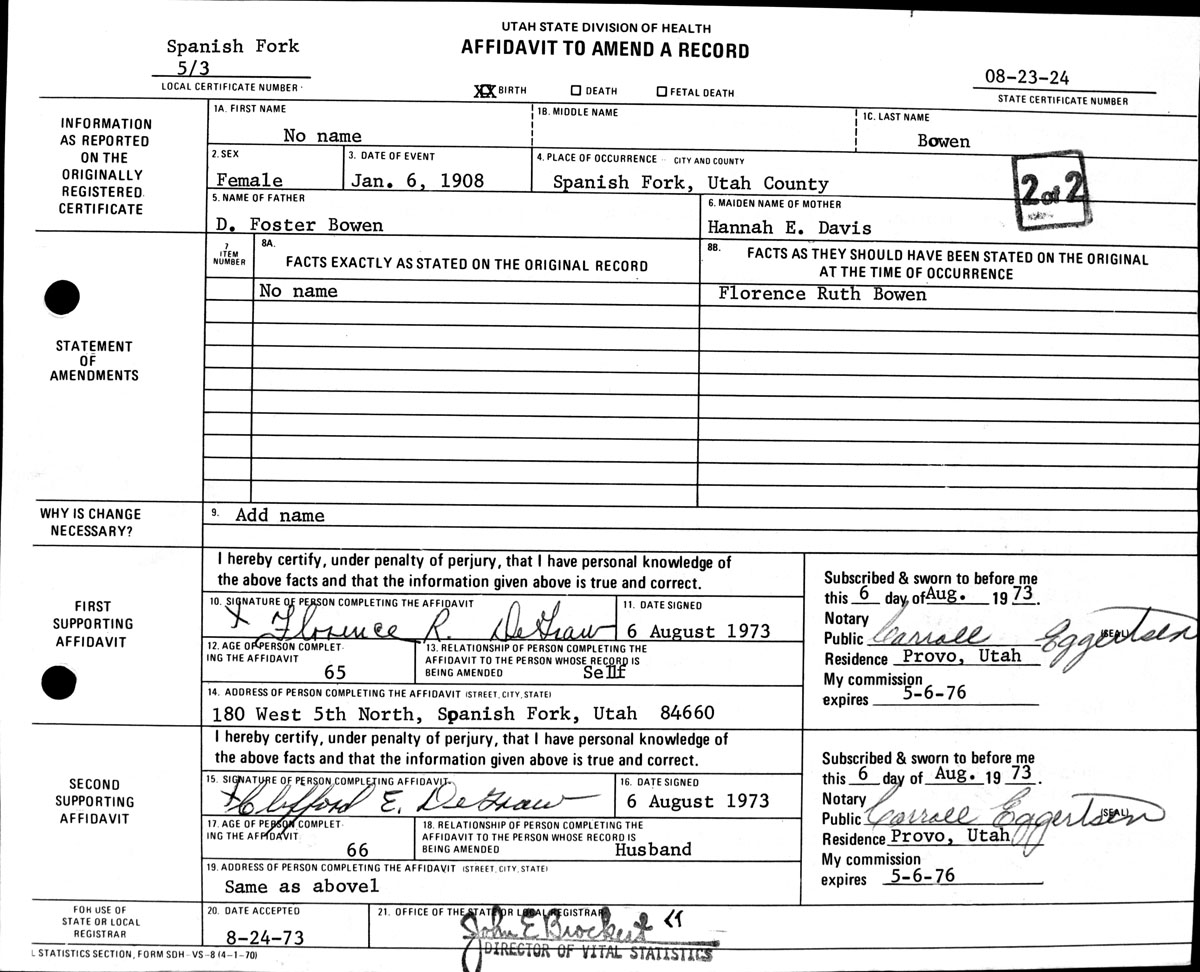 UTAH STATE DIVISION OF HEALTH
AFFIDAVIT TO AMEND A RECORD
Spanish Fork
5/3
LOCAL CERTIFICATE NUMBER
XX BIRTH ☐ DEATH ☐ FETAL DEATH
08-23-24
STATE CERTIFICATE NUMBER
INFORMATION
AS REPORTED
ON THE
ORIGINALLY
REGISTERED
CERTIFICATE
1A. FIRST NAME
No name
1B. MIDDLE NAME
1C. LAST NAME
Bowen
2. SEX
Female
3. DATE OF EVENT
Jan. 6, 1908
4. PLACE OF OCCURRENCE CITY AND COUNTY
Spanish Fork, Utah County
2 of 2
5. NAME OF FATHER
D. Foster Bowen
6. MAIDEN NAME OF MOTHER
Hannah E. Davis
STATEMENT
OF
AMENDMENTS
7
ITEM
NUMBER
8A.
FACTS EXACTLY AS STATED ON THE ORIGINAL RECORD
8B. FACTS AS THEY SHOULD HAVE BEEN STATED ON THE ORIGINAL
AT THE TIME OF OCCURRENCE
No name
Florence Ruth Bowen
WHY IS CHANGE
NECESSARY?
9. Add name
FIRST
SUPPORTING
AFFIDAVIT
I hereby certify, under penalty of perjury, that I have personal knowledge of
the above facts and that the information given above is true and correct.
10. SIGNATURE OF PERSON COMPLETING THE AFFIDAVIT
X Florence R. DeGraw
11. DATE SIGNED
6 August 1973
12. AGE OF PERSON COMPLET-
ING THE AFFIDAVIT
65
13. RELATIONSHIP OF PERSON COMPLETING THE
AFFIDAVIT TO THE PERSON WHOSE RECORD IS
BEING AMENDED Sellf
14. ADDRESS OF PERSON COMPLETING THE AFFIDAVIT (STREET, CITY, STATE)
180 West 5th North, Spanish Fork, Utah 84660
Subscribed & sworn to before me
this 6 day of Aug. 19 73.
Notary
Public Carroll Eggertsen (SEAL)
Residence Provo, Utah
My commission
expires 5-6-76
SECOND
SUPPORTING
AFFIDAVIT
I hereby certify, under penalty of perjury, that I have personal knowledge of
the above facts and that the information given above is true and correct.
15. SIGNATURE OF PERSON COMPLETING AFFIDAVIT
X Clifford E. DeGraw
16. DATE SIGNED
6 August 1973
17. AGE OF PERSON COMPLET-
ING THE AFFIDAVIT
66
18. RELATIONSHIP OF PERSON COMPLETING THE
AFFIDAVIT TO THE PERSON WHOSE RECORD IS
BEING AMENDED Husband
19. ADDRESS OF PERSON COMPLETING THE AFFIDAVIT (STREET, CITY, STATE)
Same as abovel
Subscribed & sworn to before me
this 6 day of Aug. 19 73.
Notary
Public Carroll Eggertsen (SEAL)
Residence Provo, Utah
My commission
expires 5-6-76
FOR USE OF
STATE OR LOCAL
REGISTRAR
20. DATE ACCEPTED
8-24-73
21. OFFICE OF THE STATE OR LOCAL REGISTRAR
John E Brockert
DIRECTOR OF VITAL STATISTICS
L STATISTICS SECTION, FORM SDH-VS-8 (4-1-70)